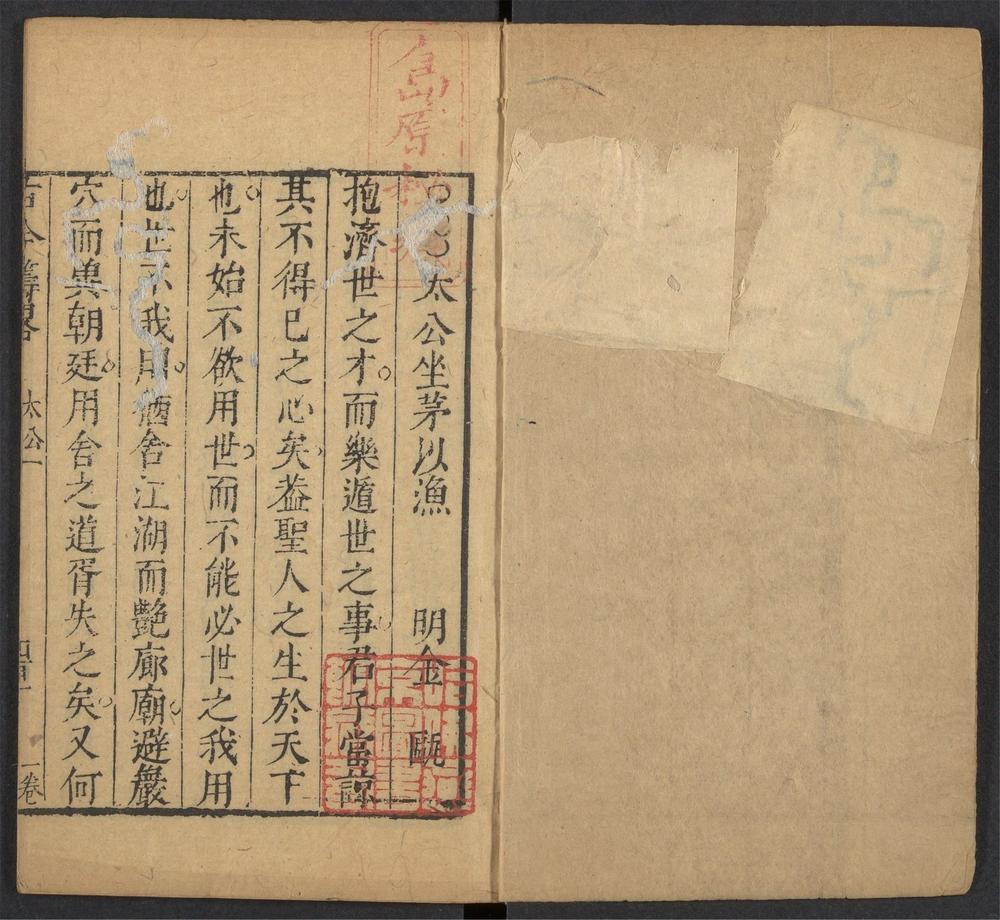 太公坐茅以漁 明金 甌
抱濟世之才而樂遁世之事君子當諒
其不得已之心矣葢聖人之生於天下
也未始不欲用世而不能必世之我用
也世不我用酒舍江湖而艷廊廟避巖
穴而與朝廷用舍之道胥失之矣又何
古今籌畧 太公一 一卷